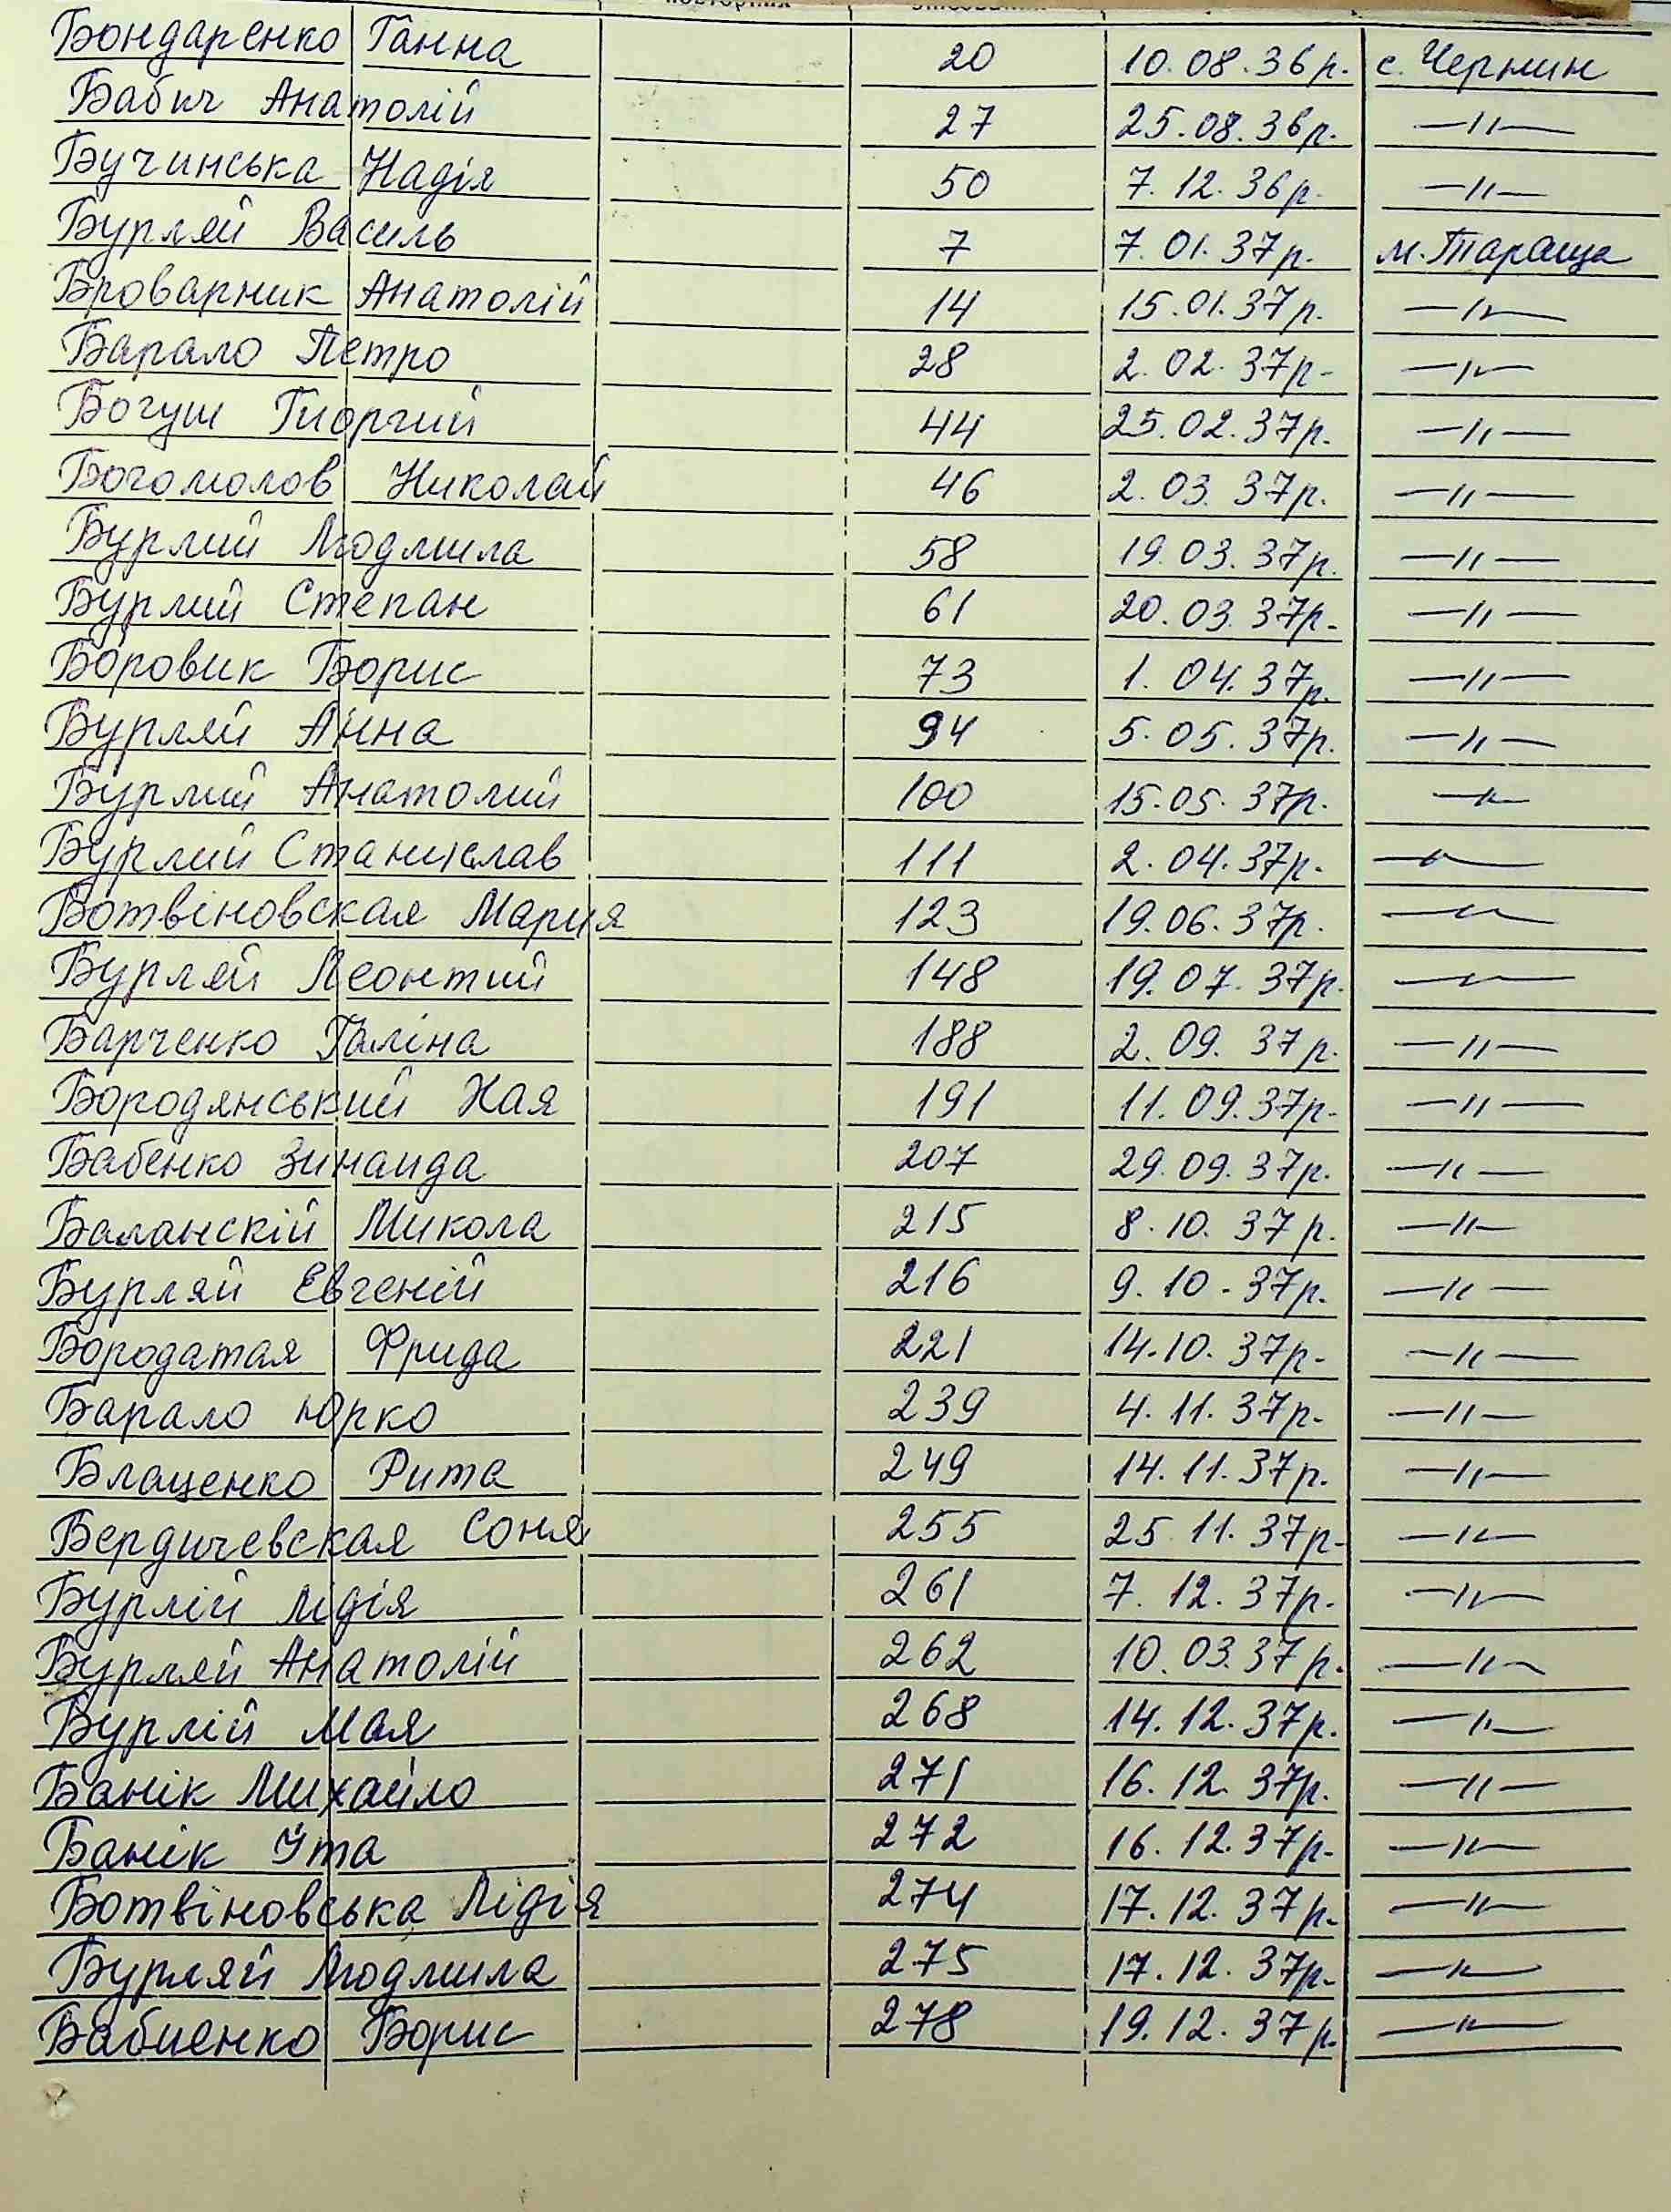 Бондаренко Ганна 20 10.08.36р. с. Чернин
Бабич Анатолій 27 25.08.36р. —//—
Бучинська Надія 50 7.12.36р. —//—
Бурляй Василь 7 7.01.37р. м. Тараща
Броварник Анатолій 14 15.01.37р. —//—
Барало Петро 28 2.02.37р. —//—
Богуш Гиоргий 44 25.02.37р. —//—
Богомолов Николай 46 2.03.37р. —//—
Бурлий Людмила 58 19.03.37р. —//—
Бурлий Степан 61 20.03.37р. —//—
Боровик Борис 73 1.04.37р. —//—
Бурляй Анна 94 5.05.37р. —//—
Бурлий Анатолий 100 15.05.37р. —//—
Бурлий Станислав 111 2.04.37р. —//—
Ботвіновская Мария 123 19.06.37р. —//—
Бурляй Леонтий 148 19.07.37р. —//—
Барченко Галіна 188 2.09.37р. —//—
Бородянський Хая 191 11.09.37р. —//—
Бабенко Зинаида 207 29.09.37р. —//—
Баланскій Микола 215 8.10.37р. —//—
Бурляй Евгеній 216 9.10.37р. —//—
Бородатая Фрида 221 14.10.37р. —//—
Барало Юрко 239 4.11.37р. —//—
Блащенко Рита 249 14.11.37р. —//—
Бердичевская Соня 255 25.11.37р. —//—
Бурлій Лідія 261 7.12.37р. —//—
Бурляй Анатолій 262 10.03.37р. —//—
Бурлій Мая 268 14.12.37р. —//—
Банік Михайло 271 16.12.37р. —//—
Банік Ута 272 16.12.37р. —//—
Ботвіновська Лідія 274 17.12.37р. —//—
Бурляй Людмила 275 17.12.37р. —//—
Бабиенко Борис 278 19.12.37р. —//—